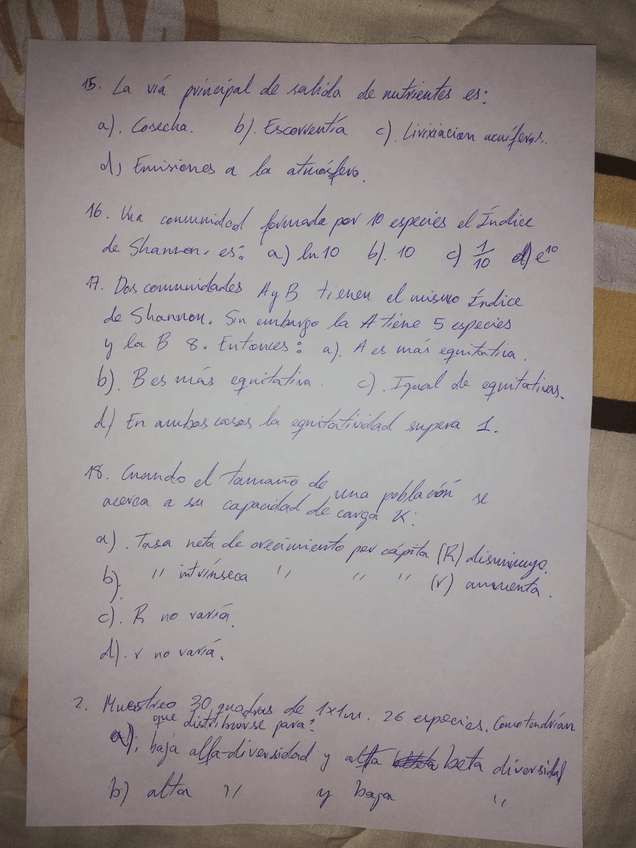 15. La vía principal de salida de nutrientes es:
a). Cosecha. b). Escorrentía c). Livixiacion acuíferos.
d) Emisiones a la atmósfera.
16. Una comunidad formada por 10 especies el Índice
de Shannon, es: a) ln 10 b). 10 c) 1/10 d) e^10
17. Dos comunidades A y B tienen el mismo Índice
de Shannon. Sin embargo la A tiene 5 especies
y la B 8. Entonces: a). A es más equitativa.
b). B es más equitativa. c). Igual de equitativas.
d) En ambos casos la equitatividad supera 1.
18. Cuando el tamaño de una población se
acerca a su capacidad de carga K:
a). Tasa neta de crecimiento per cápita (R) disminuye.
b). " intrínseca " " " (r) aumenta.
c). R no varía.
d). r no varía.
2. Muestreo 30 quadras de 1x1m. 26 especies. Como tendrían
que distribuirse para?
a); baja alfa-diversidad y alta beta diversidad
b) alta " y baja "